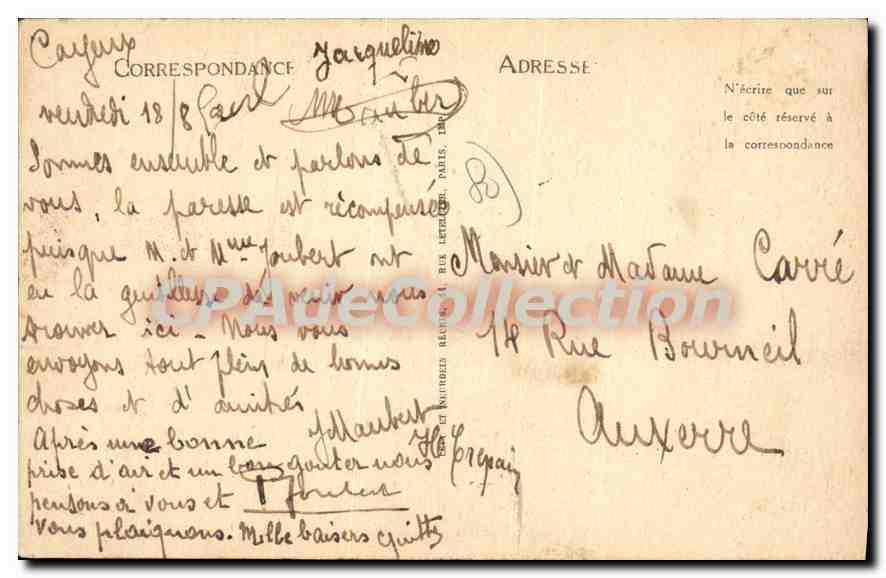 Cayeux
CORRESPONDANCE
Jacqueline
vendredi 18/8
Maubert
Sommes ensemble et parlons de
vous, la paresse est récompensée
puisque M. et Mme Joubert ont
eu la gentillesse de venir nous
trouver ici - Nous vous
envoyons tout plein de bonnes
choses et d'amitiés
JMaubert
Après une bonne
prise d'air et un bon goûter nous
pensons à vous et Joubert
vous plaignons. Mille baisers
ADRESSE
N'écrire que sur
le côté réservé à
la correspondance
80
Monsieur et Madame Carré
14 Rue Bourneil
Auxerre
LEVY ET NEURDEIN RÉUNIS, 44, RUE LETELLIER, PARIS, IMP.
CPAdeCollection